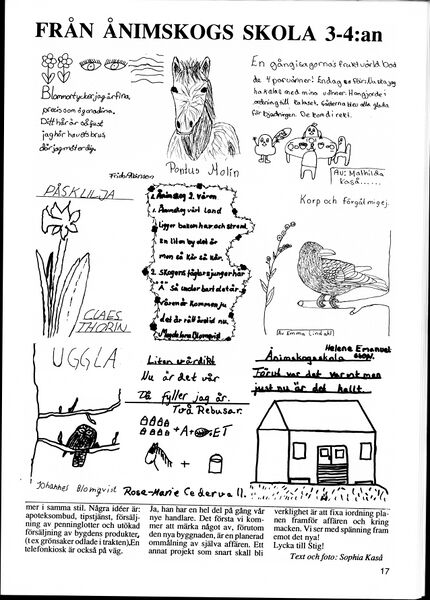 FRÅN ÅNIMSKOGS SKOLA 3-4:an
Blommor tycker jag är fina
precis som ögondina.
Ditt hår är så fint
jag hör havets brus
där jag möter dig.
Frida
Pontus Molin
En gång i sagornas fruktvärld bod
de 4 parvänner: Endag
ha kalas med mina vänner. Han gjorde i
ordning till kalaset. Gästerna blev alla glada
för bjudningen. De kom direkt.
Av: Mathilda
Kaså......
Korp och förgätmigej.
Av Emma Lindahl
PÅSKLILJA
CLAES
THORIN
Ånimskog 2. Våren
1. Ånimskog vårt land
ligger bakom hav och strand
En liten by det är
men så kär så kär.
2. Skogens fåglar sjunger här
Å så underbart det är
våren är kommen ju
det är vårt årstid nu.
Magdalena Blomqvist
UGGLA
Johannes Blomqvist
Liten vårdikt
Nu är det vår
Då fyller jag år.
Två Rebusar.
+A+ ET
+
Rose-Marie Cedervall.
Helene Emanuel
Ånimskogsskola
Förut var det varmt men
just nu är det kallt.
mer i samma stil. Några idéer är:
apoteksombud, tipstjänst, försälj-
ning av penninglotter och utökad
försäljning av bygdens produkter,
(t ex grönsaker odlade i trakten).En
telefonkiosk är också på väg.
Ja, han har en hel del på gång vår
nye handlare. Det första vi kom-
mer att märka något av, förutom
den nya byggnaden, är en planerad
ommålning av själva affären. Ett
annat projekt som snart skall bli
verklighet är att fixa iordning pla-
nen framför affären och kring
macken. Vi ser med spänning fram
emot det nya!
Lycka till Stig!
Text och foto: Sophia Kaså
17